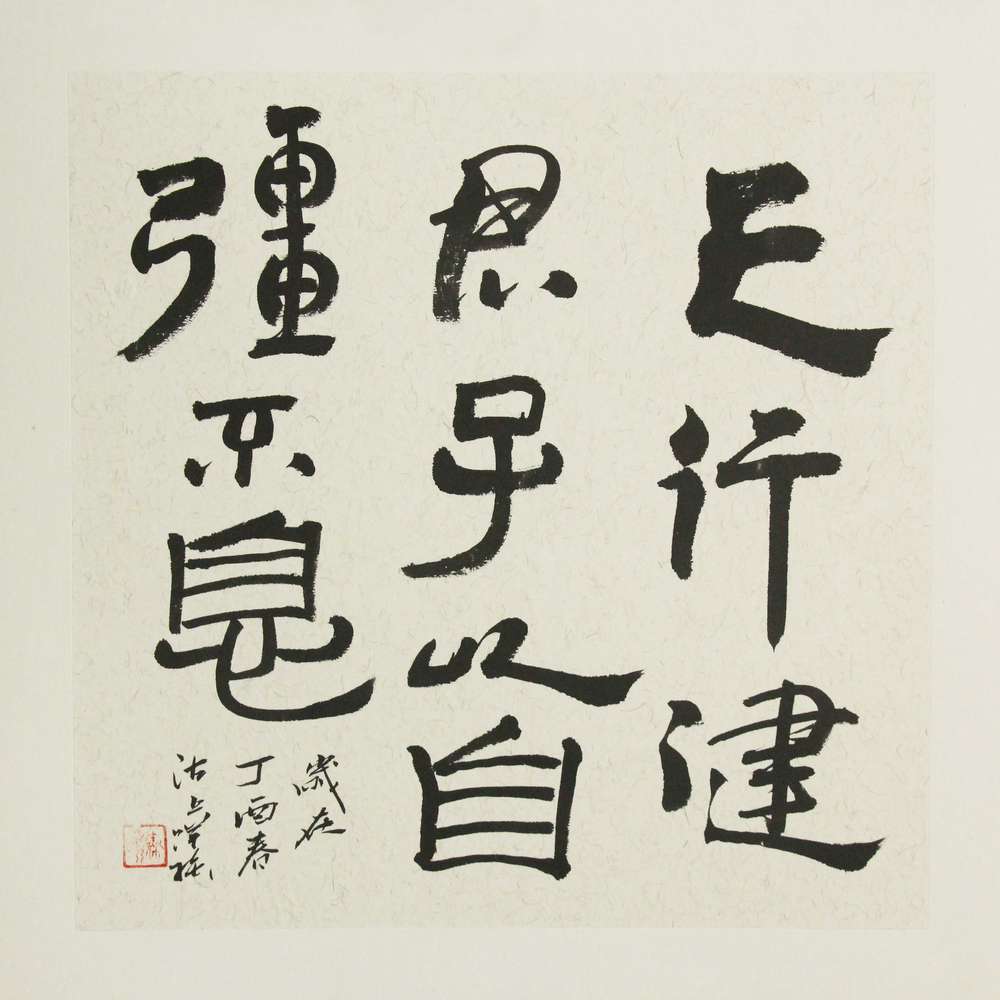 天行健
君子以自
彊不息
歲在
丁酉春
沽上